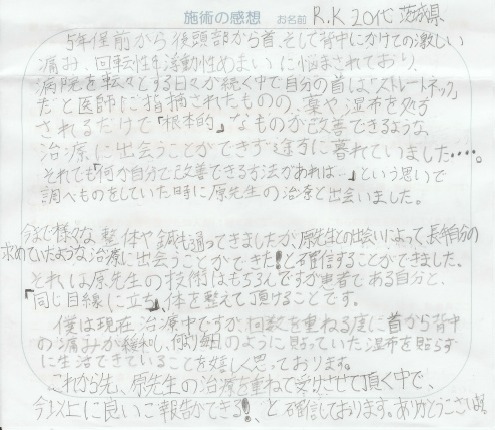 施術の感想 お名前 R.K 20代 茨城県
5年程前から後頭部から首、そして背中にかけての激しい
痛み、回転性浮動性めまいに悩まされており、
病院を転々とする日々が続く中で自分の首は「ストレートネック」
だと医師に指摘されたものの、薬や湿布を処方
されるだけで「根本的」なものが改善できるような
治療に出会うことができず途方に暮れていました・・・・。
それでも「何か自分で改善できる方法があれば…」という思いで
調べものをしていた時に原先生の治療と出会いました。
今まで様々な整体や鍼も通ってきましたが、原先生との出会いによって長年自分の
求めていたような治療に出会うことができた!と確信することができました。
それは原先生の技術はもちろんですが患者である自分と、
「同じ目線に立ち」、体を整えて頂けることです。
僕は現在治療中ですが、回数を重ねる度に首から背中
の痛みが緩和し、何より毎日のように貼っていた湿布を貼らず
に生活できていることを嬉しく思っております。
これから先、原先生の治療を重ねて受けさせて頂く中で、
今以上に良いご報告ができる!、と確信しております。ありがとうございます。